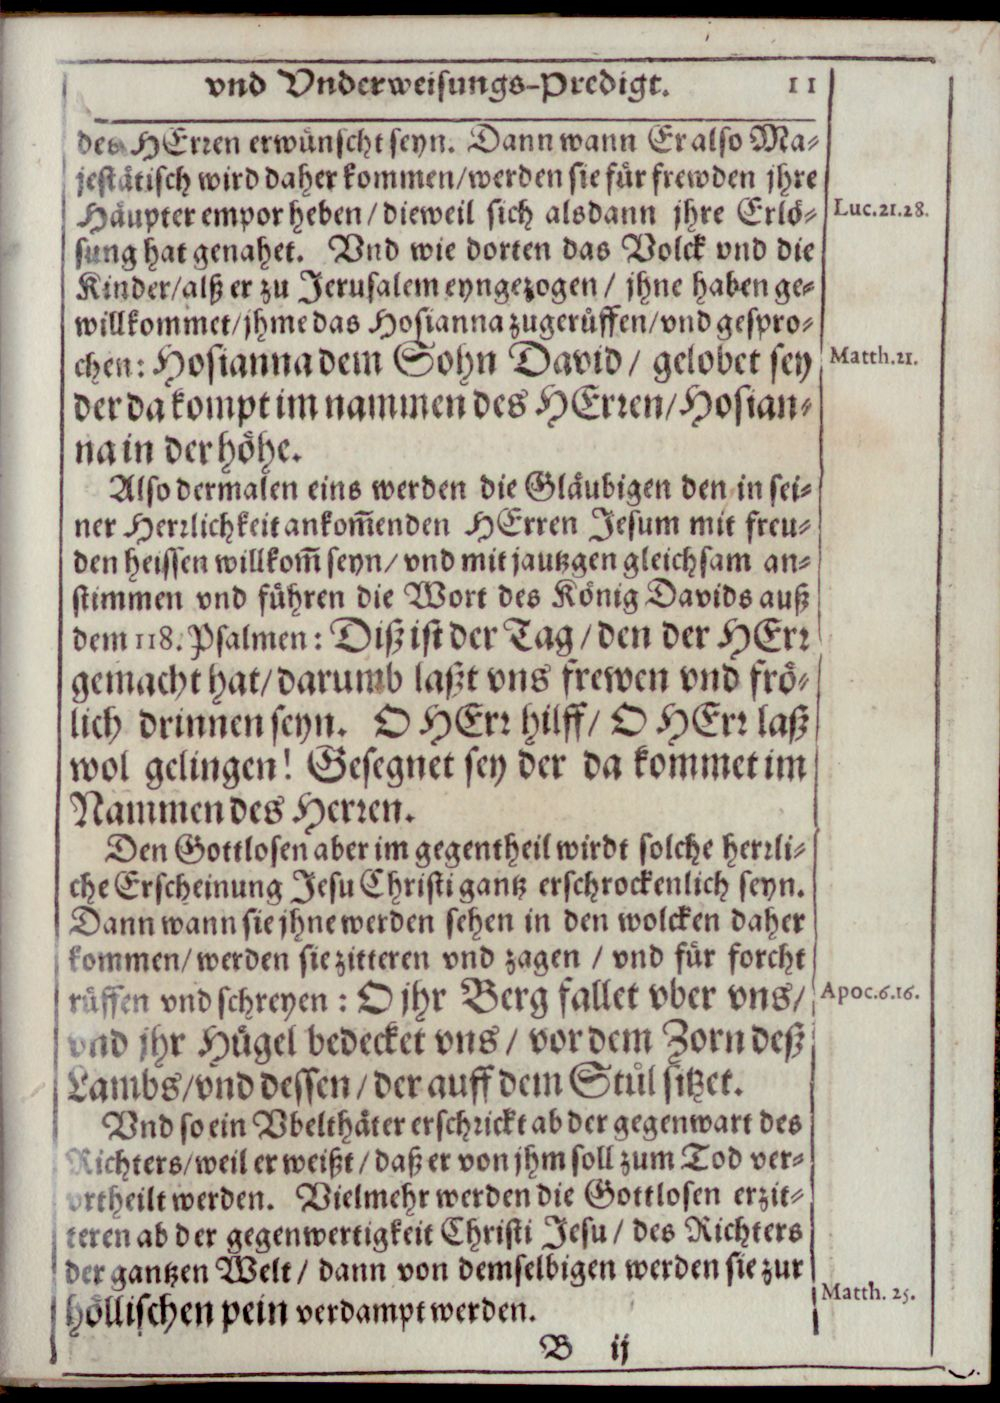 vnd Vnderweisungs-Predigt. 11
des HErren erwünscht seyn. Dann wann Er also Ma-
jestätisch wird daher kommen/werden sie für frewden jhre
Häupter empor heben/dieweil sich alsdann jhre Erlö- Luc.21.28.
sung hat genahet. Vnd wie dorten das Volck vnd die
Kinder/alß er zu Jerusalem eyngezogen/ jhne haben ge-
willkommet/jhme das Hosianna zugerůffen/vnd gespro-
chen: Hosianna dem Sohn David/ gelobet sey Matth.21.
der da kompt im nammen des HErren/Hosian-
na in der höhe.
Also dermalen eins werden die Gläubigen den in sei-
ner Herrlichkeit ankom̃enden HErren Jesum mit freu-
den heissen willkom̃ seyn/ vnd mit jautzgen gleichsam an-
stimmen vnd führen die Wort des König Davids auß
dem 118. Psalmen: Diß ist der Tag/den der HErr
gemacht hat/darumb laßt vns frewen vnd frö-
lich drinnen seyn. O HErr hilff/ O HErr laß
wol gelingen! Gesegnet sey der da kommet im
Nammen des Herren.
Den Gottlosen aber im gegentheil wirdt solche herrli-
che Erscheinung Jesu Christi gantz erschrockenlich seyn.
Dann wann sie jhne werden sehen in den wolcken daher
kommen/werden sie zitteren vnd zagen / vnd für forcht
růffen vnd schreyen : O jhr Berg fallet vber vns/ Apoc.6.16.
vnd jhr Hügel bedecket vns / vor dem Zorn deß
Lambs/vnd dessen/der auff dem Stůl sitzet.
Vnd so ein Vbelthäter erschrickt ab der gegenwart des
Richters/weil er weißt/daß er von jhm soll zum Tod ver-
vrtheilt werden. Vielmehr werden die Gottlosen erzit-
teren ab der gegenwertigkeit Christi Jesu/ des Richters
der gantzen Welt/ dann von demselbigen werden sie zur
höllischen pein verdampt werden. Matth. 25.
B ij